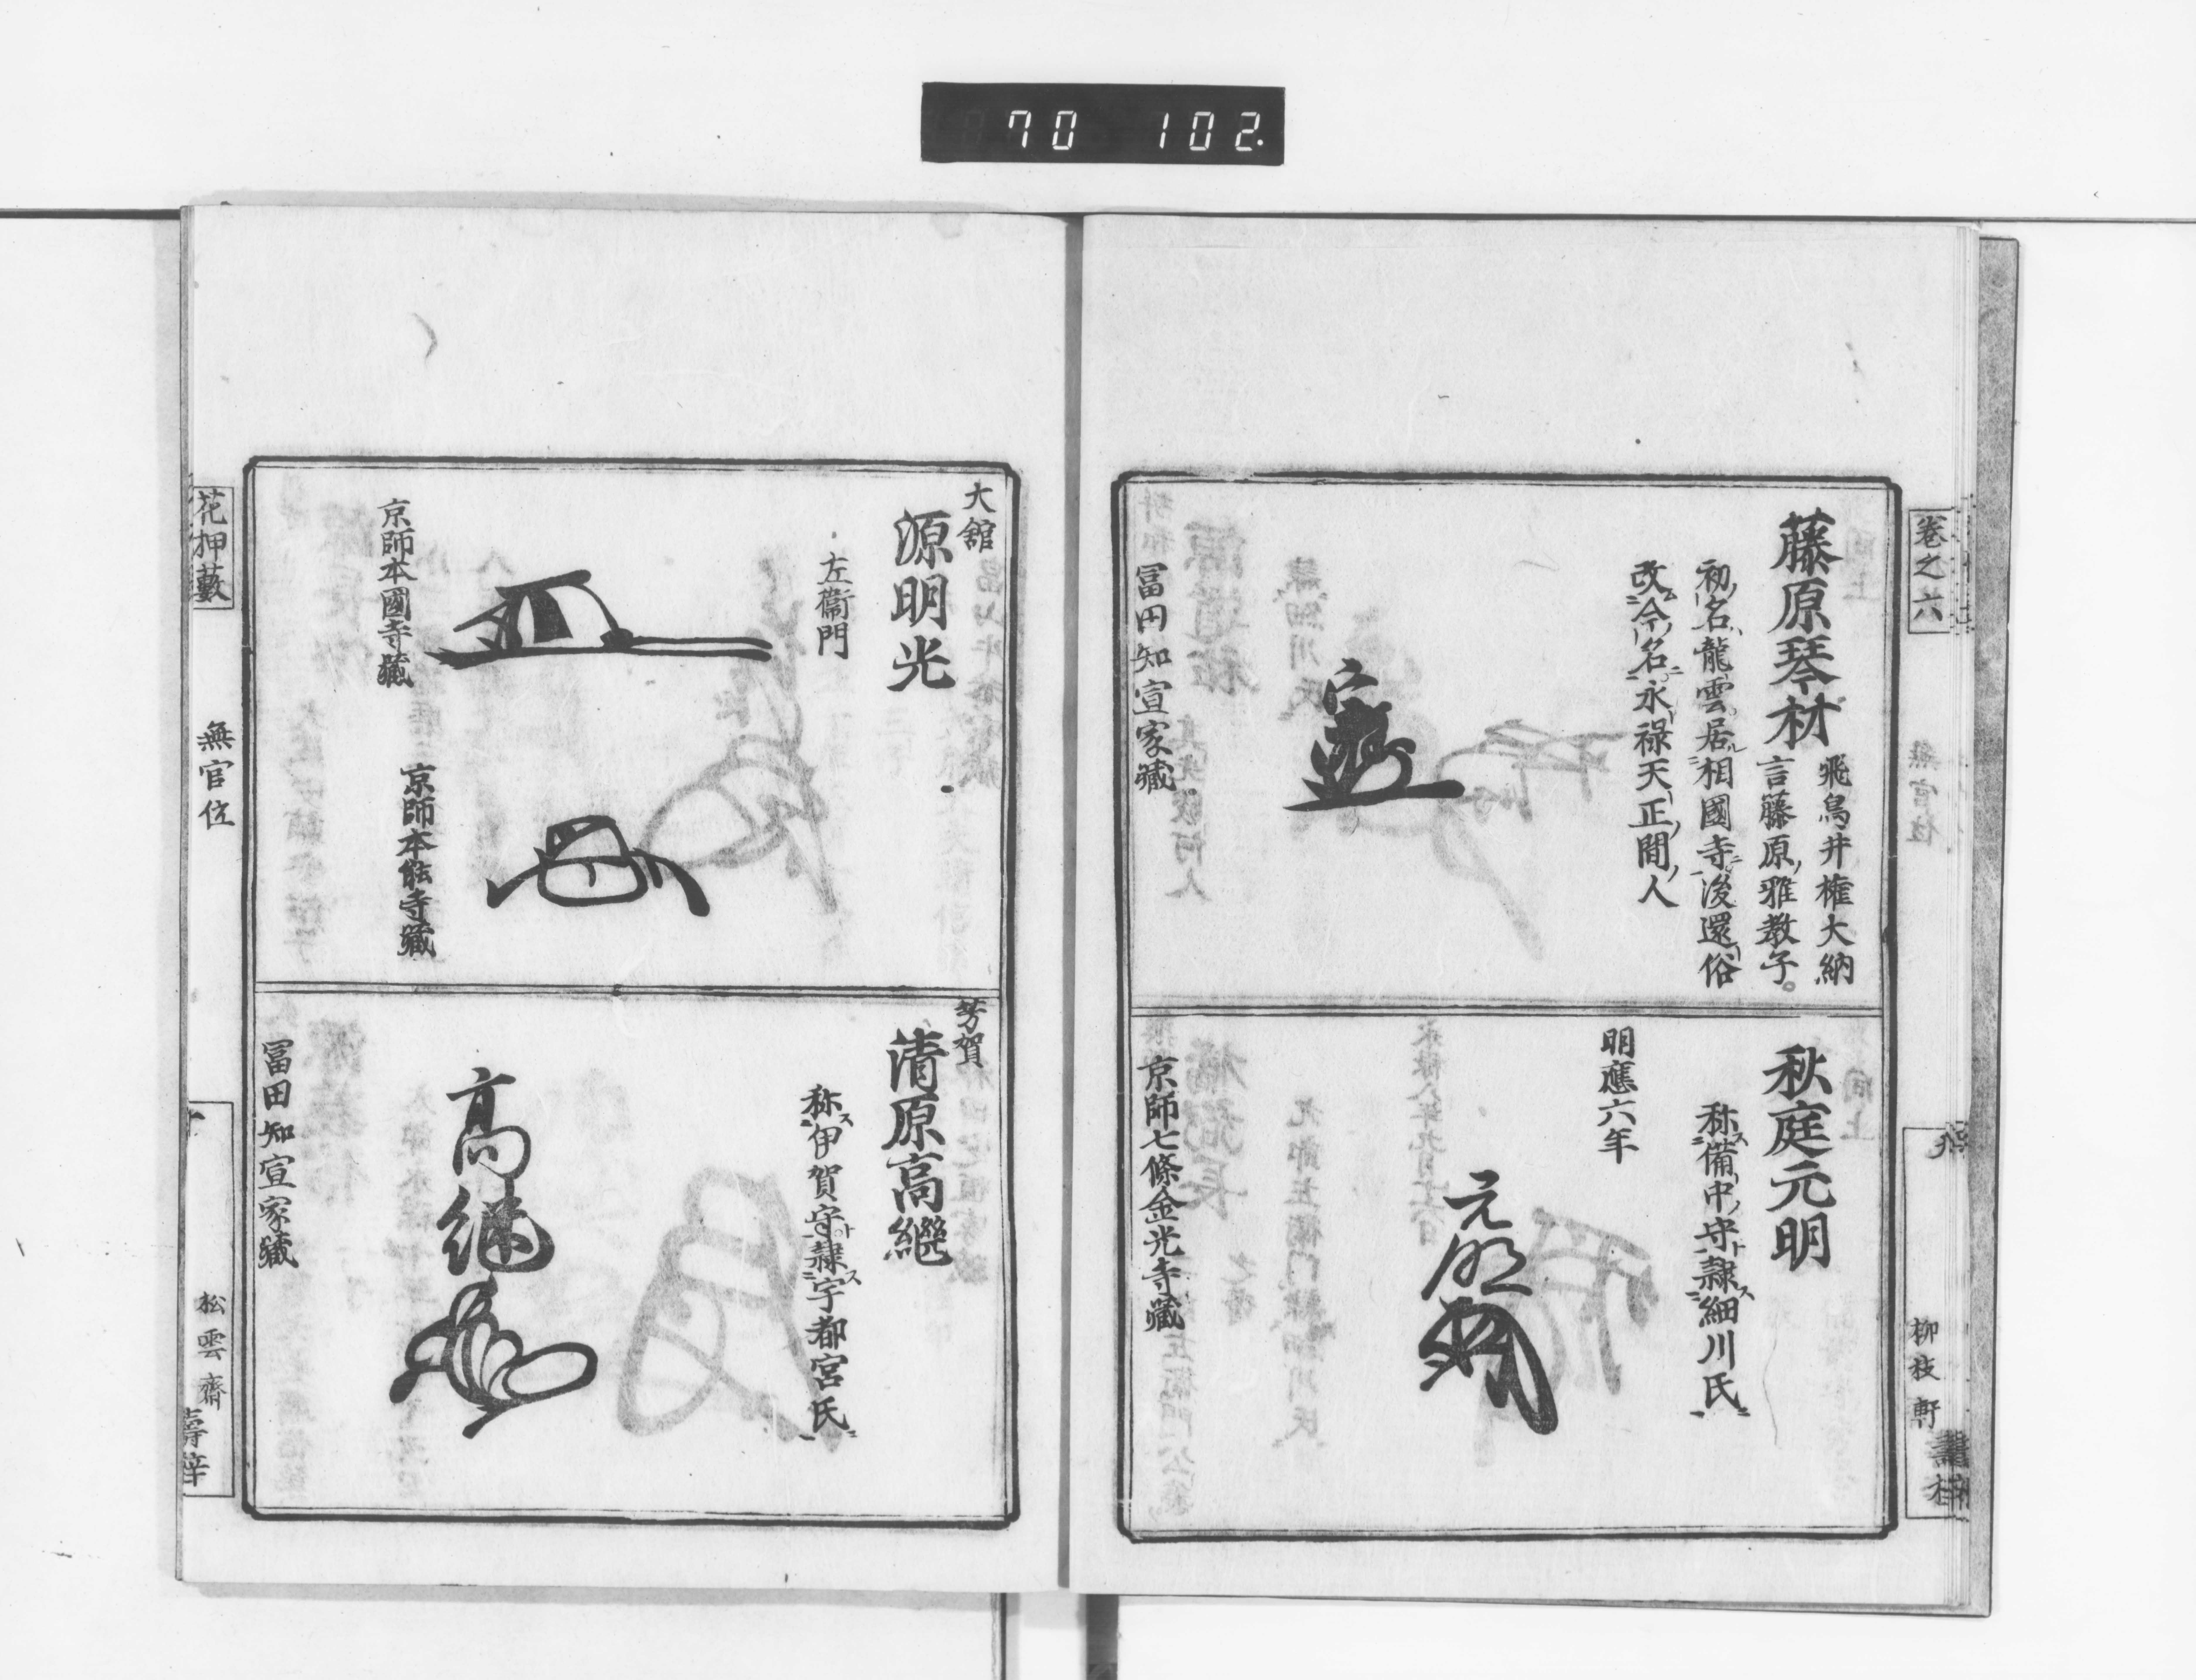 70 102.
卷之六
柳枝軒
藤原琴材
飛鳥井権大納
言藤原ノ雅教子。
初ノ名龍雲居相國寺後還俗
改今ノ名永禄天正ノ間ノ人
冨田知宣家藏
秋庭元明
称備中ノ守隷細川氏
明應六年
元明
京師七條金光寺藏
大舘
源明光
左衞門
京師本國寺藏
京師本能寺藏
芳賀
清原高繼
称伊賀守隷宇都宮氏
高継
冨田知宣家藏
花押藪
無官位
松雲齋
壽梓